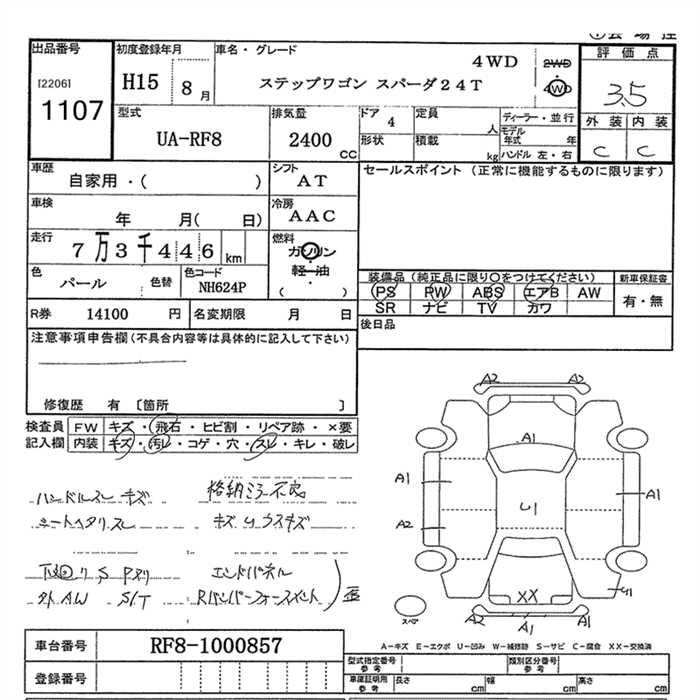 出品番号
[2206]
1107
初度登録年月
H15 8月
車名・グレード
4WD
ステップワゴン スパーダ24T
2WD
4WD
評価点
3.5
外装 内装
C C
型式
UA-RF8
排気量
2400 CC
ドア 4
形状
定員 人
積載 kg
ディーラー・並行
モデル年式 年
ハンドル 左・右
車歴
自家用・( )
シフト
AT
セールスポイント (正常に機能するものに限ります)
車検
年 月( 日)
冷房
AAC
走行
7万3千446km
燃料
ガソリン
軽油
( )
色
パール
色替
色コード
NH624P
装備品(純正品に限り○をつけてください)
PS PW ABS エアB AW
SR ナビ TV カワ
新車保証書
有・無
R券 14100 円
名変期限 月 日
後日品
注意事項申告欄(不具合内容等は具体的に記入して下さい)
修復歴 有 〔箇所 〕
検査員記入欄
FW キズ・飛石・ヒビ割・リペア跡・×要
内装 キズ・汚レ・コゲ・穴・スレ・キレ・破レ
ハンドルスレ キズ
格納ミラー不良
シートヘタリスレ
キズ リウスキズ
下回リ S Pヌリ
エンドパネル
外AW S/T
Rバンパーフォースメント
歪
A2 A2
A1
A1
A1
U1
A2
XX
U1
A2 A1 A1
スペア
A-キズ E-エクボ U-凹み W-補修跡 S-サビ C-腐合 XX-交換済
車台番号
RF8-1000857
登録番号
型式指定番号 参考
類別区分番号 参考
車庫証明用 参考
長さ cm
幅 cm
高さ cm